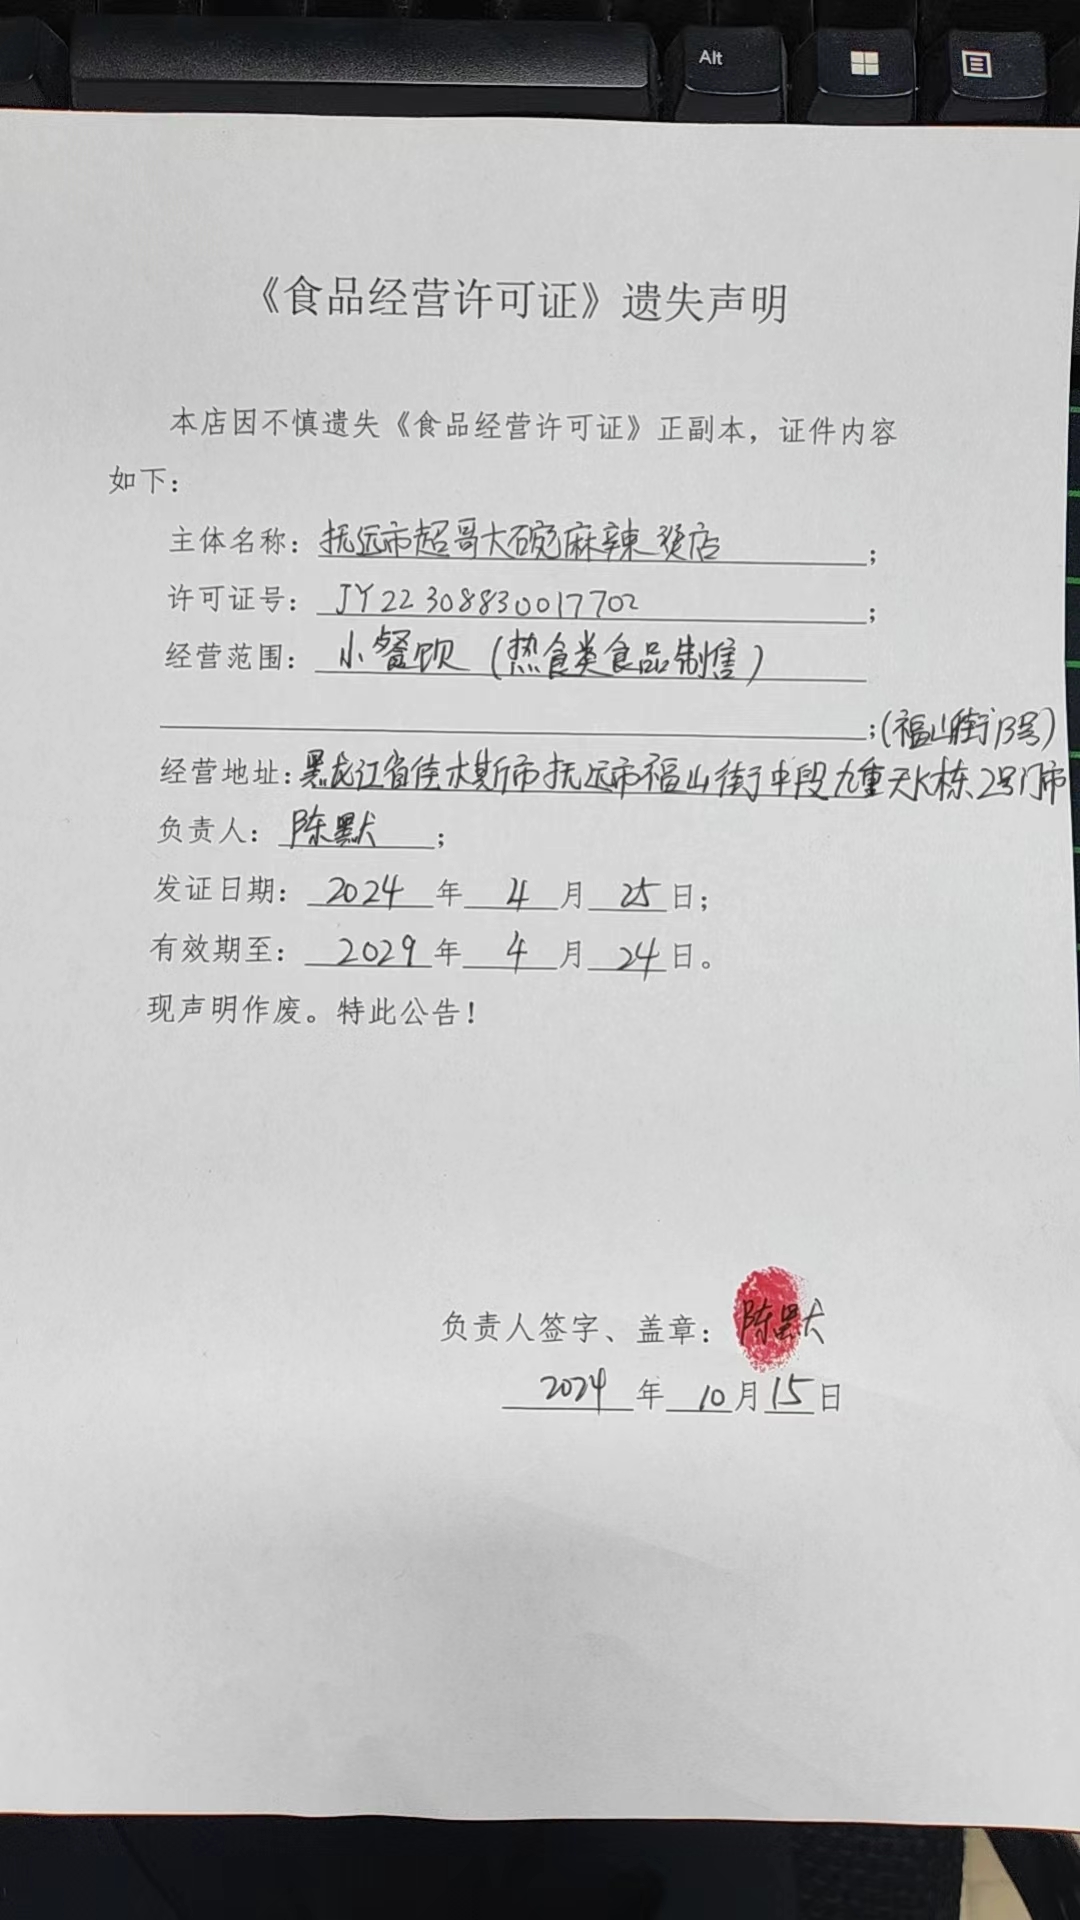 Alt
《食品经营许可证》遗失声明
本店因不慎遗失《食品经营许可证》正副本，证件内容
如下：
主体名称：抚远市超哥大碗麻辣烫店；
许可证号：JY22308830017702；
经营范围：小餐饮（热食类食品制售）
；(福山街13号)
经营地址：黑龙江省佳木斯市抚远市福山街中段九重天K栋2号门市
负责人：陈默；
发证日期：2024年4月25日；
有效期至：2029年4月24日。
现声明作废。特此公告！
负责人签字、盖章：陈默
2024年10月15日